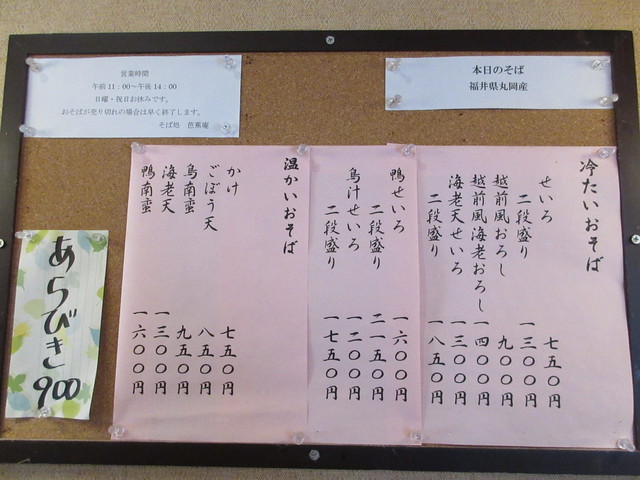 営業時間
午前11:00～午後14:00
日曜・祝日お休みです。
おそばが売り切れの場合は早く終了します。
そば処 芭蕉庵
本日のそば
福井県丸岡産
冷たいおそば
せいろ 七五〇円
二段盛り 一三〇〇円
越前風おろし 九〇〇円
越前風海老おろし 一四〇〇円
海老天せいろ 一三〇〇円
二段盛り 一八五〇円
鴨せいろ 一六〇〇円
二段盛り 二一五〇円
鳥汁せいろ 一二〇〇円
二段盛り 一七五〇円
温かいおそば
かけ 七五〇円
ごぼう天 八五〇円
鳥南蛮 九五〇円
海老天 一三〇〇円
鴨南蛮 一六〇〇円
あらびき 900